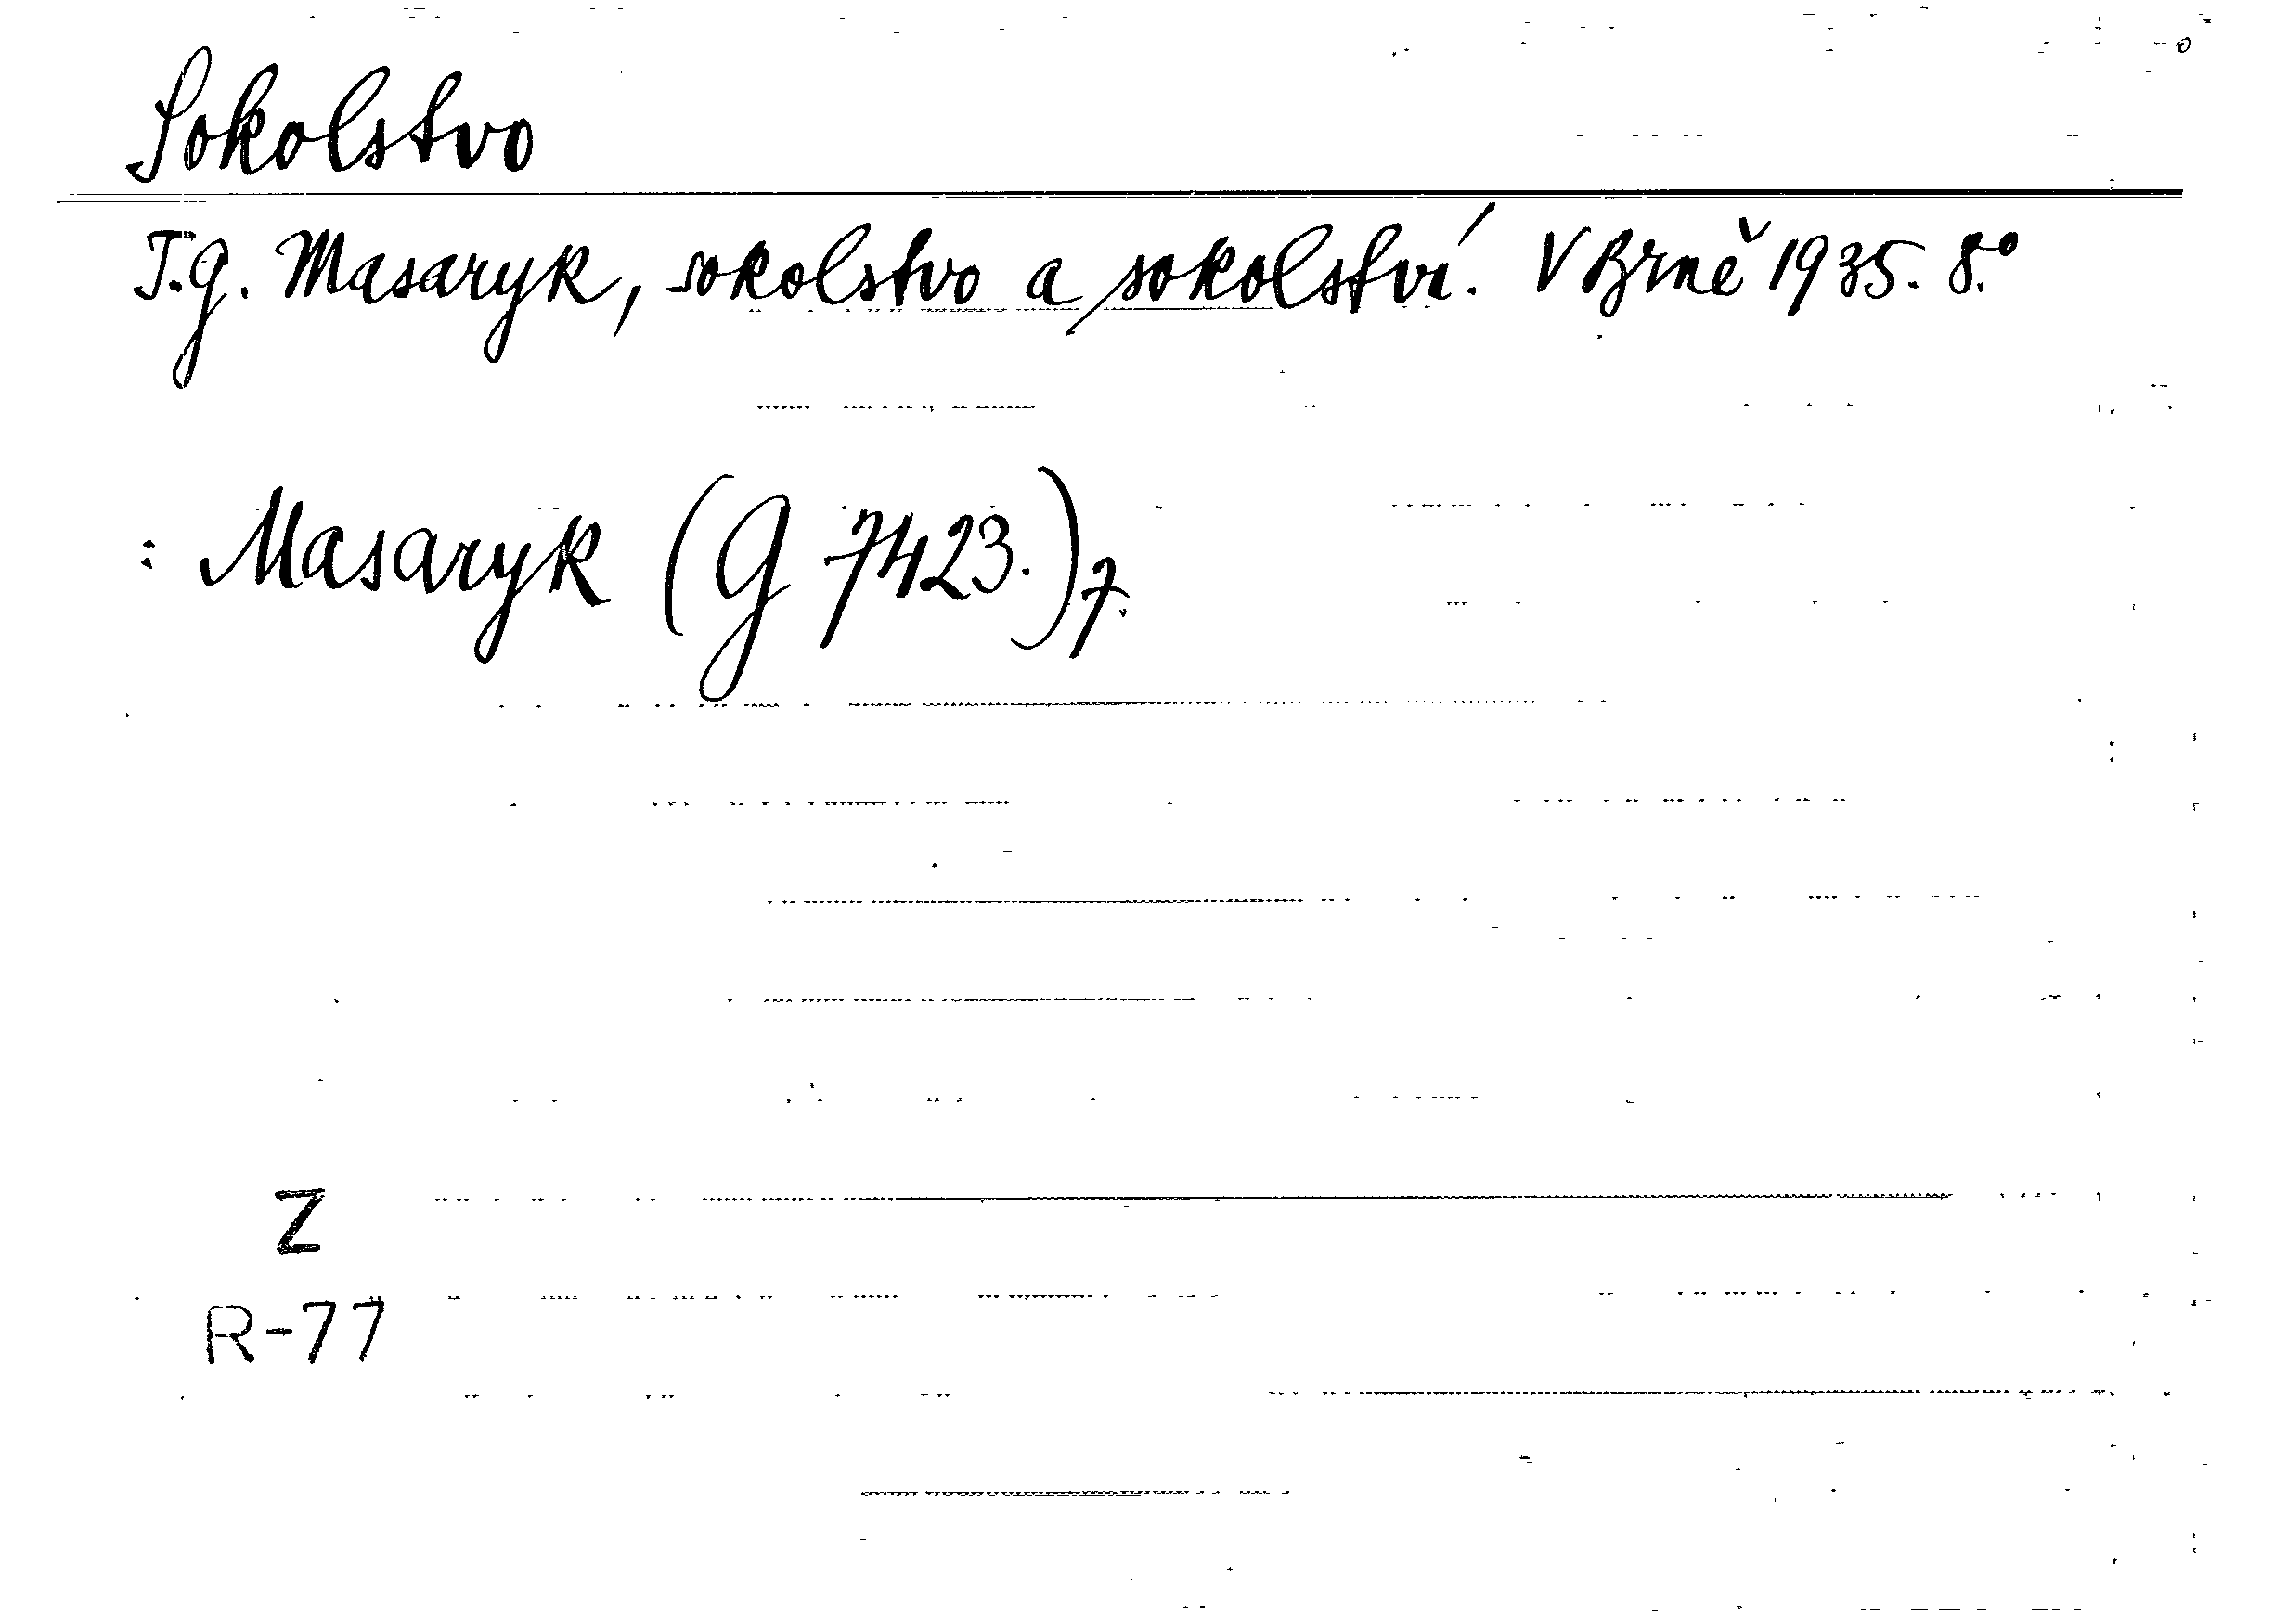 Sokolstvo
T.G. Masaryk, sokolstvo a sokolství. V Brně 1935. 8.°
: Masaryk (G 7423.)7.
Z
R-77